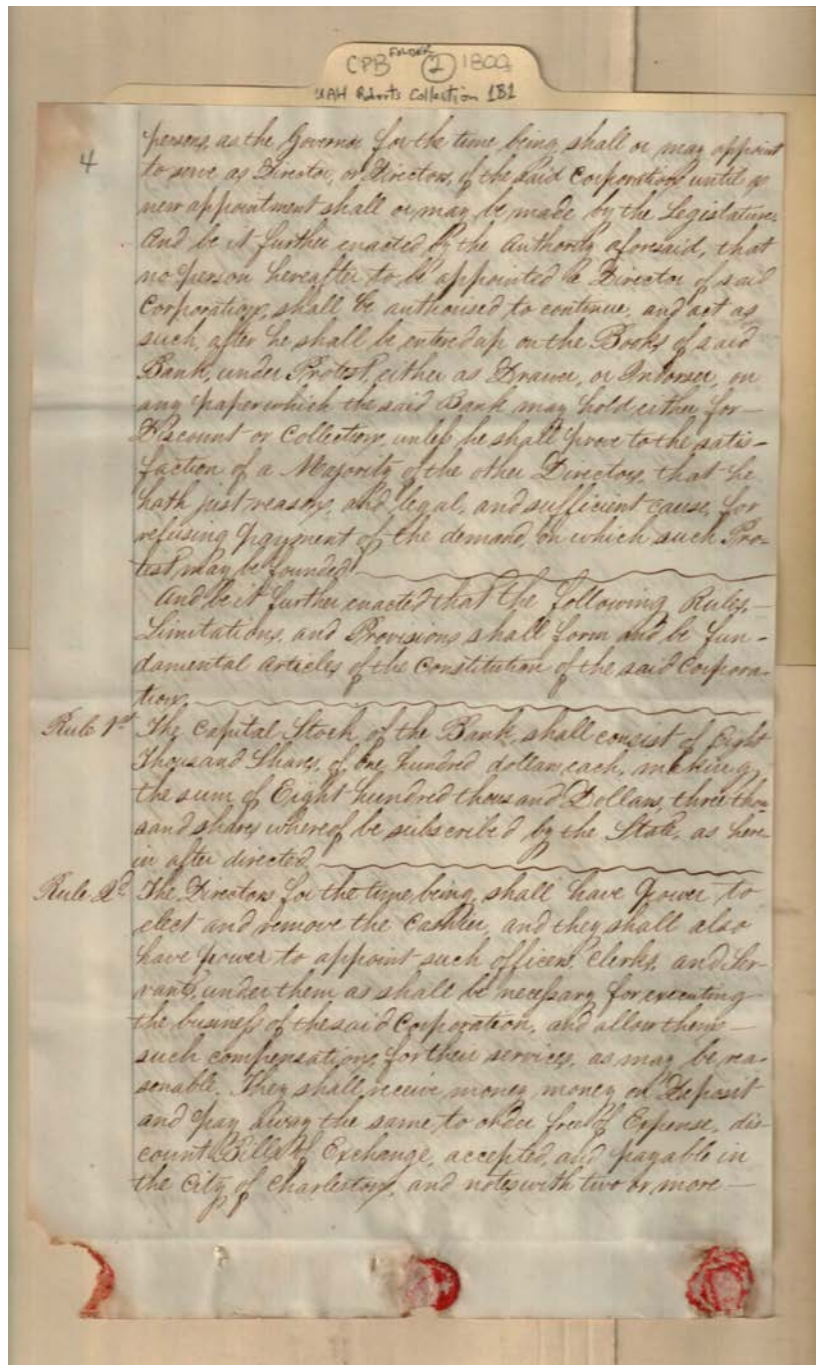 CPB FOLDER (2) 1809
UAH Roberts Collection 1B1
4
persons, as the Governor for the time being, shall or may appoint
to serve as Director, or Directors, of the said Corporation until a
new appointment shall or may be made by the Legislature.
And be it further enacted by the Authority aforesaid, that
no person hereafter to be appointed a Director of said
Corporation, shall be authorised to continue, and act as
such, after he shall be entered up on the Books of said
Bank, under Protest, either as Drawer, or Indorser, on
any paper which the said Bank may hold either for—
Discount or Collection, unless he shall prove to the satis-
faction of a Majority of the other Directors, that he
hath just reason, and legal, and sufficient cause, for
refusing payment of the demand, on which such Pro-
test may be founded.
And be it further enacted that the following Rules,—
Limitations, and Provisions shall form and be fun-
damental Articles of the Constitution of the said Corpora-
tion.
Rule 1st The Capital Stock of the Bank, shall consist of Eight
Thousand Shares, of One hundred dollars each, making
the sum of Eight hundred thousand Dollars, three thou
sand shares whereof be subscribed by the State, as here-
in after directed
Rule 2d The Directors for the time being, shall have power to
elect and remove the Cashier, and they shall also
have power to appoint such officers, Clerks, and Ser-
vants, under them as shall be necessary for executing
the business of the said Corporation, and allow them—
such compensations, for their services, as may be rea-
sonable. They shall receive money, money on Deposit
and pay away the same to order free of Expense, dis-
count Bills of Exchange, accepted, and payable in
the City of Charleston, and notes with two or more—